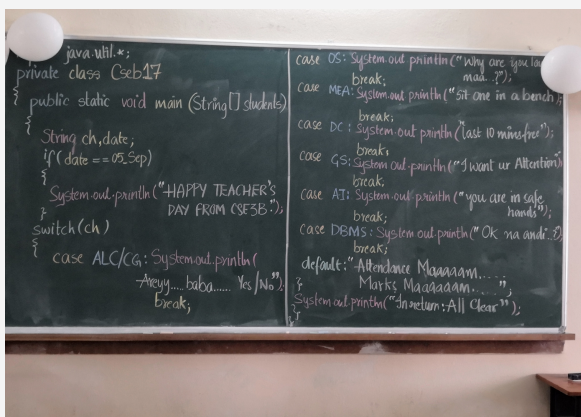 java.util.*;
private class Cseb17
{
public static void main (String[] students)
{
String ch,date;
if(date==05_Sep)
{
System.out.println("HAPPY TEACHER'S
DAY FROM CSE3B.");
}
switch(ch)
{
case ALC/CG: System.out.println(
Areyy....baba...... Yes/No");
break;
case OS: System.out println("Why are you
maa..?");
break;
case MEA: System.out.println("Sit one in a bench");
break;
case DC: System.out println("last 10 mins free");
break;
case GS: System.out println("I want ur Attention
break;
case AI: System.out println("you are in safe
hands");
break;
case DBMS: System.out println("Ok na andi..?
break;
default:"Attendance Maaaaam....
Marks Maaaaaam....";
}
System out.println("In return:All Clear");
}
}